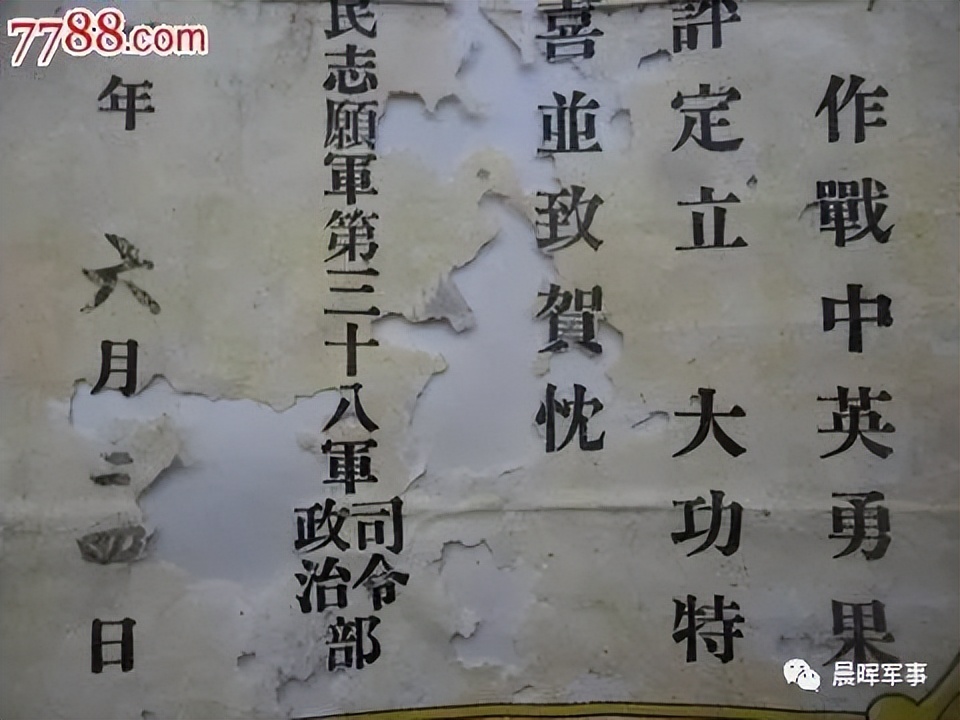 7788.com
作戰中英勇果
評定立 大功特
喜並致賀忱
民志願軍第三十八軍司令部
政治
年 六月二 日
晨晖军事